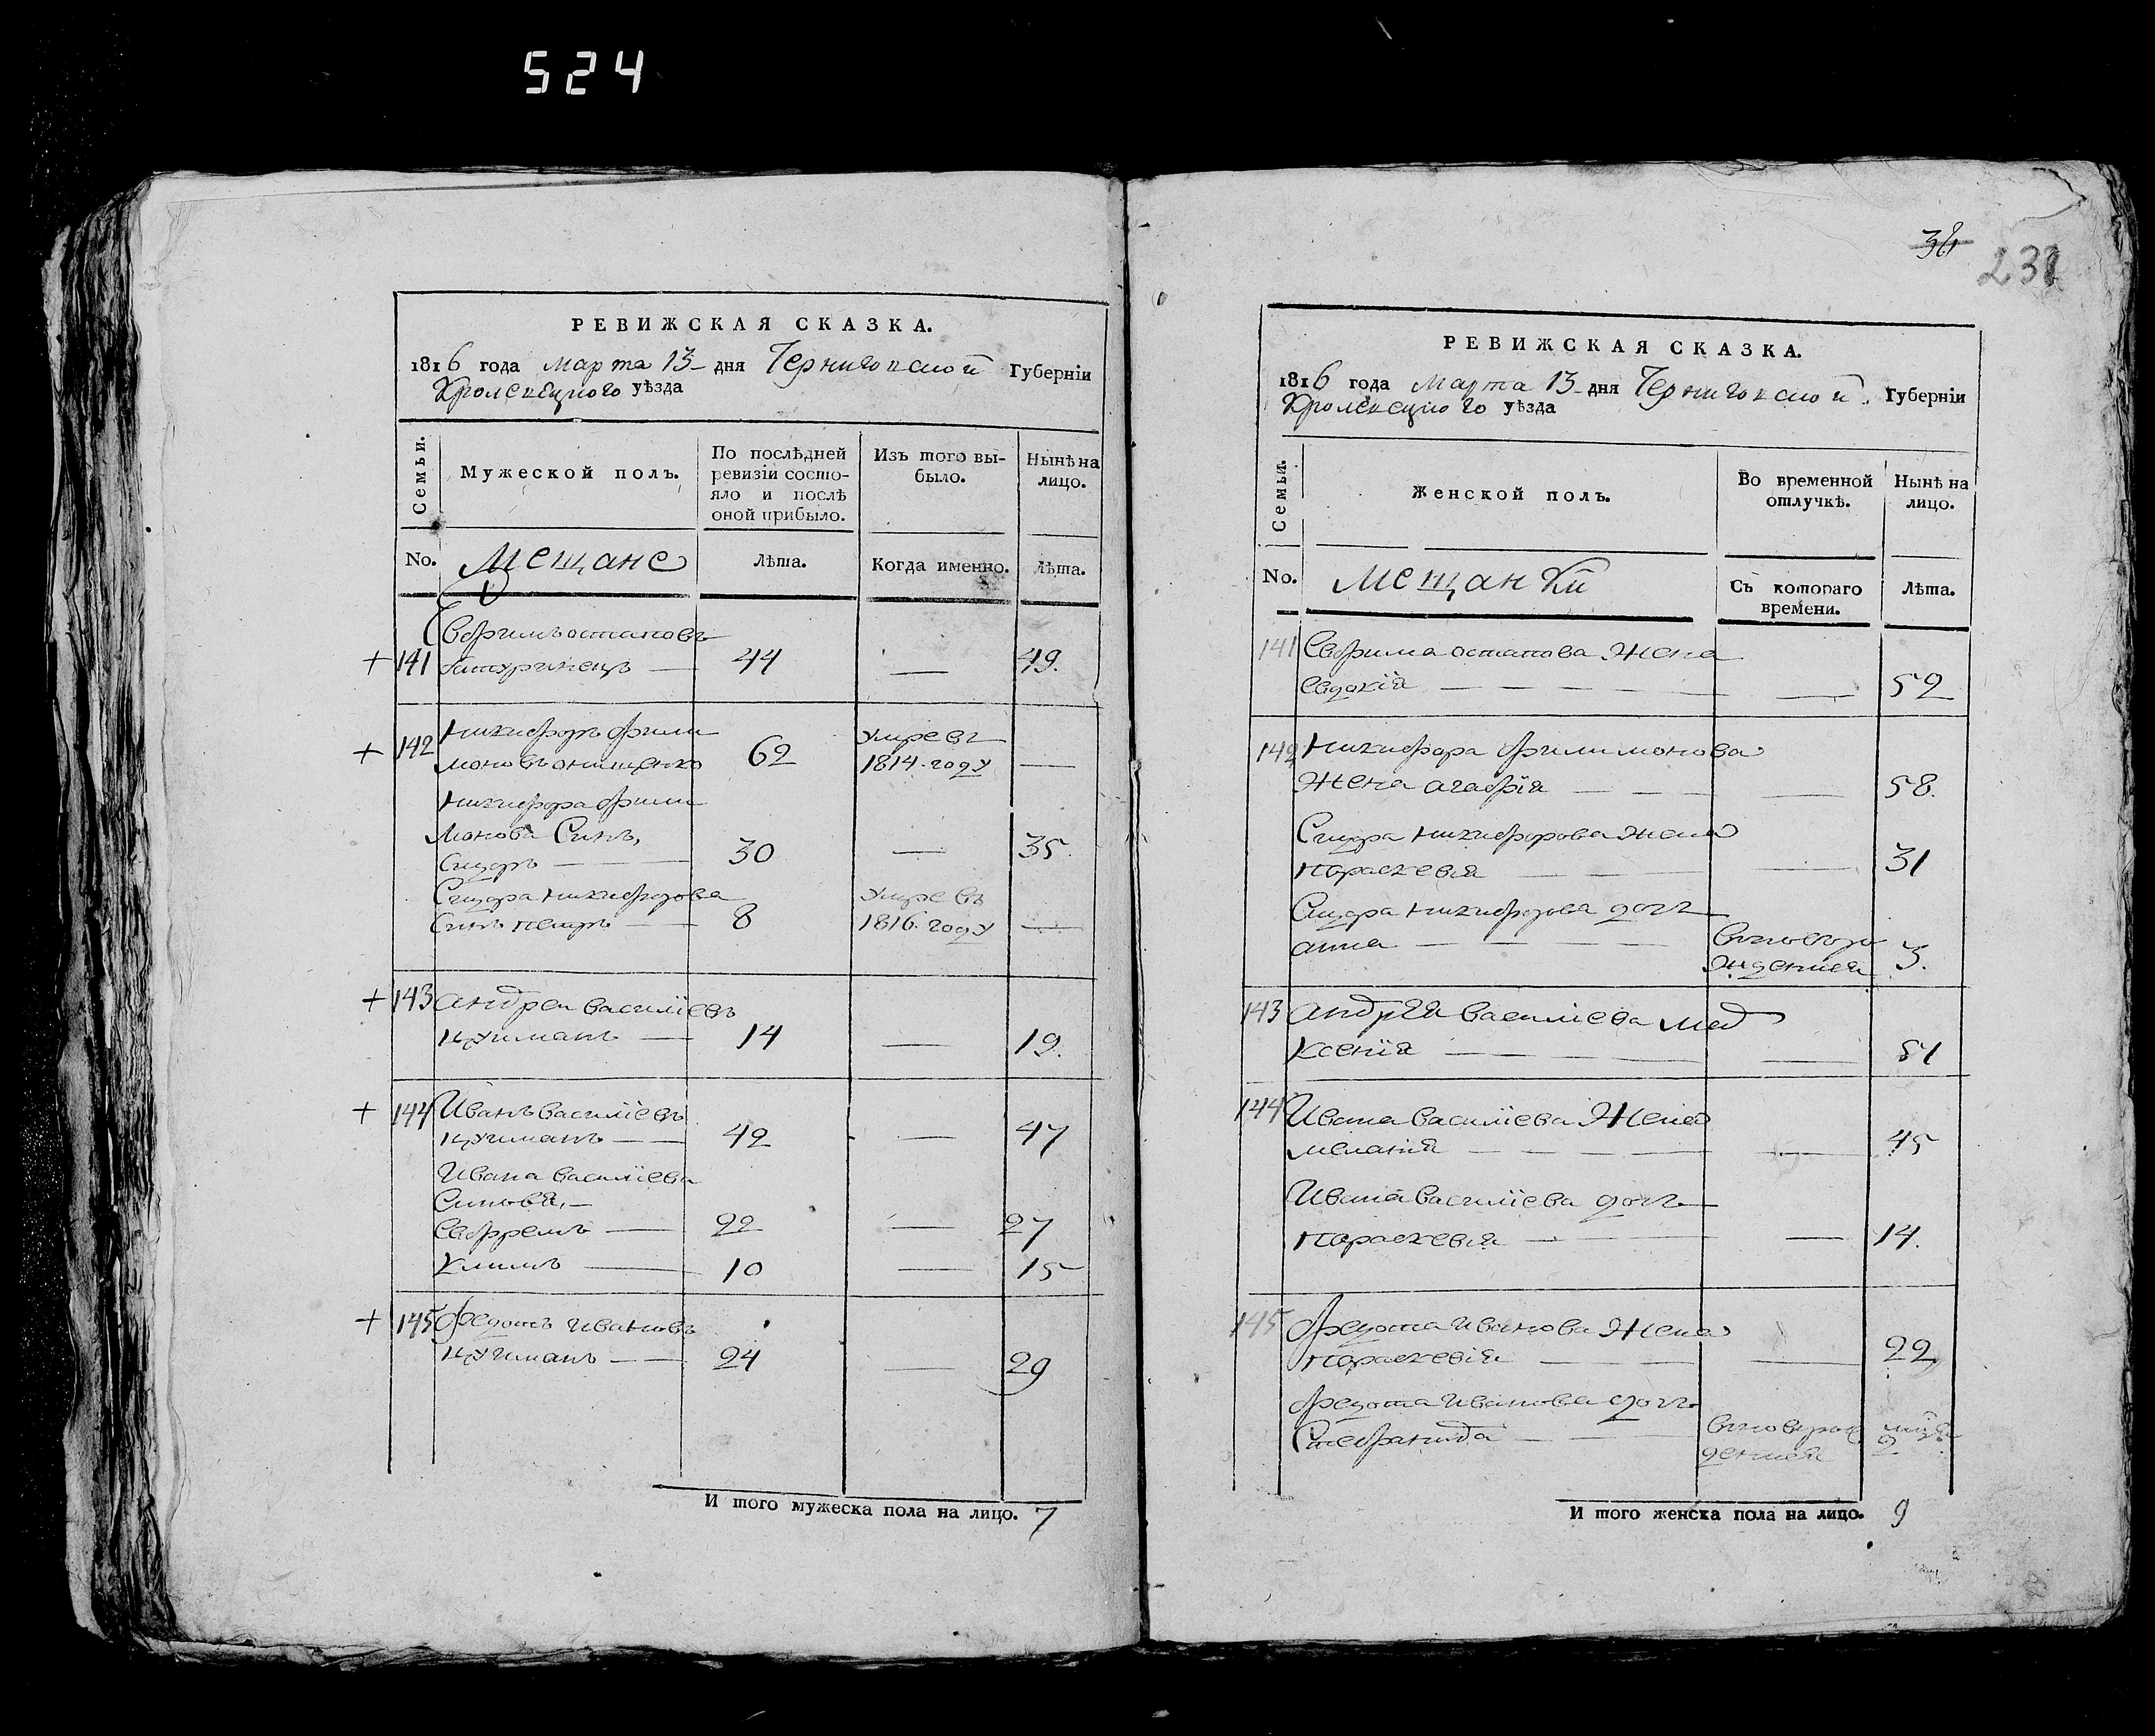 524
38
231
РЕВИЖСКАЯ СКАЗКА.
1816 года марта 13 дня Черниговской Губерніи
Кролевецкого уѣзда
Семьи.
Мужеской полъ.
По послѣдней
ревизіи состо-
яло и послѣ
оной прибыло.
Изъ того вы-
было.
Нынѣ на
лицо.
No.
Мещане
Лѣта.
Когда именно.
Лѣта.
Евфимъ остаповъ
+ 141 батуринецъ — 44 — 49.
+ 142 Никифоръ фили
моновъ онищенко 62 умре въ 1814. году —
Никифора фили
монова Синъ,
Сидоръ — 30 — 35.
Сидора никифорова
Синъ петръ — 8 умре въ 1816. году —
+ 143 андрей василіевъ
цугманъ — 14 — 19.
+ 144 Иванъ василіевъ
цугманъ — 42 — 47
Ивана василіева
Синовя, —
Евфремъ — 22 — 27
Климъ — 10 — 15
+ 145 федотъ ивановъ
цугманъ — 24 — 29
И того мужеска пола на лицо. 7
РЕВИЖСКАЯ СКАЗКА.
1816 года марта 13 дня Черниговской Губерніи
Кролевецкого уѣзда
Семьи.
Женской полъ.
Во временной
отлучкѣ.
Нынѣ на
лицо.
No.
мещанки
Съ котораго
времени.
Лѣта.
141 Евфима остапова Жена
евдокія — — 52
142 Никифора филимонова
Жена агафія — — 58.
Сидора никифорова жена
параскевія — — 31
Сидора никифорова дочь
анна — вновъ ро
жденная 3.
143 андрея василіева мат
Ксенія — — 51
144 Ивана василіева Жена
меланія — — 45
Ивана василіева дочь
параскевія — — 14.
145 федота иванова Жена
параскевія — — 22
федота иванова дочь
Стефанида — вновъ рож
денная 2
И того женска пола на лицо. 9